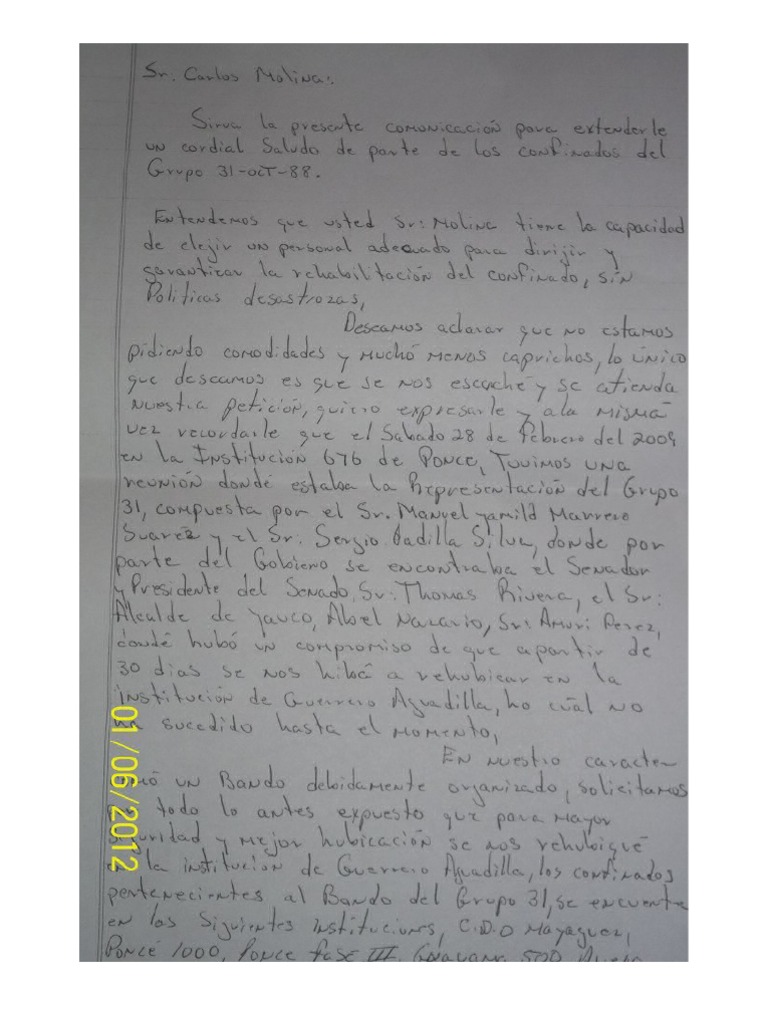 Sr. Carlos Molina:.
Sirva la presente comonicación para extenderle
un cordial Saludo de parte de los confinados del
Grupo 31-OCT-88.
Entendemos que usted Sr: Molina tiene la capacidad
de elejir un personal adecuado para dirijir y
garantizar la rehabilitación del confinado, sin
Politicas desastrozas,
Deseamos aclarar que no estamos
pidiendo comodidades y muchó menos caprichos, lo único
que deseamos es que se nos escuché y se atienda
nuestra petición, quiero expresarle y ala misma
vez recordarle que el Sabado 28 de Febrero del 2009
en la Institución 676 de Ponce, Tuvimos una
reunión dondé estaba la Representación del Grupo
31, compuesta por el Sr. Manuel Yamild Marrero
Suarez y el Sr. Sergio Padilla Silva, donde por
parte del Gobierno se encontraba el Senador
y Presidente del Senado, Sr: Thomas Rivera, el Sr:
Alcalde de Yauco, Abel Nazario, Sr: Amuri Perez,
dondé hubó un compromiso de que apartir de
30 dias se nos hibá a rehubicar en la
institución de Guerrero Aguadilla, ho cuál no
ha sucedido hasta el momento,
En nuestro caracter
un Bando debidamente organizado, solicitamos
todo lo antes expuesto que para mayor
y mejor hubicación se nos rehubiqué
la institución de Guerrero Aguadilla, los confinados
pertenecientes al Bando del Grupo 31, se encuentr
en las Siguientes instituciones, C.D.O Mayaguez,
Poncé 1000, Ponce fase III, 500
01/06/2012